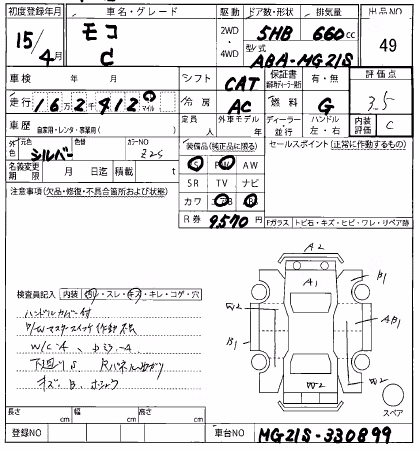 初度登録年月 車名・グレード 駆動 ドア数・形状 排気量 出品NO
15/4月 モコ C 2WD 4WD 5HB 660cc 49
型式 ABA-MG21S
車検 年 月 シフト CAT 保証書 有・無 評価点
走行 16万2千412 マイル 冷房 AC 燃料 G 3.5
車歴 自家用・レンタ・事業用( ) 定員 人 外車モデル 年 ディーラー・並行 ハンドル 左・右 内装評価 C
外色 元色 シルバー 色替 カラーNO Z2S 装備品(純正品に限る) セールスポイント(正常に作動するもの)
名義変更期限 月 日迄 積載 t PS PW AW
SR TV ナビ
注意事項(欠品・修復・不具合箇所および状態) カワ エアB
R券 9,570 Fガラス トビ石・キズ・ヒビ・ワレ・リペア跡
A2
A1
B1
検査員記入 内装 スレ・キズ・キレ・コゲ・穴
W2
ハンドルカバー付
AB1
P/Wマスタースイッチ作動
B1
W/C-4
下廻りS
キズ、B、
W2
スペア
長さ cm 幅 cm 高さ cm
登録NO 車台NO MG21S-330899